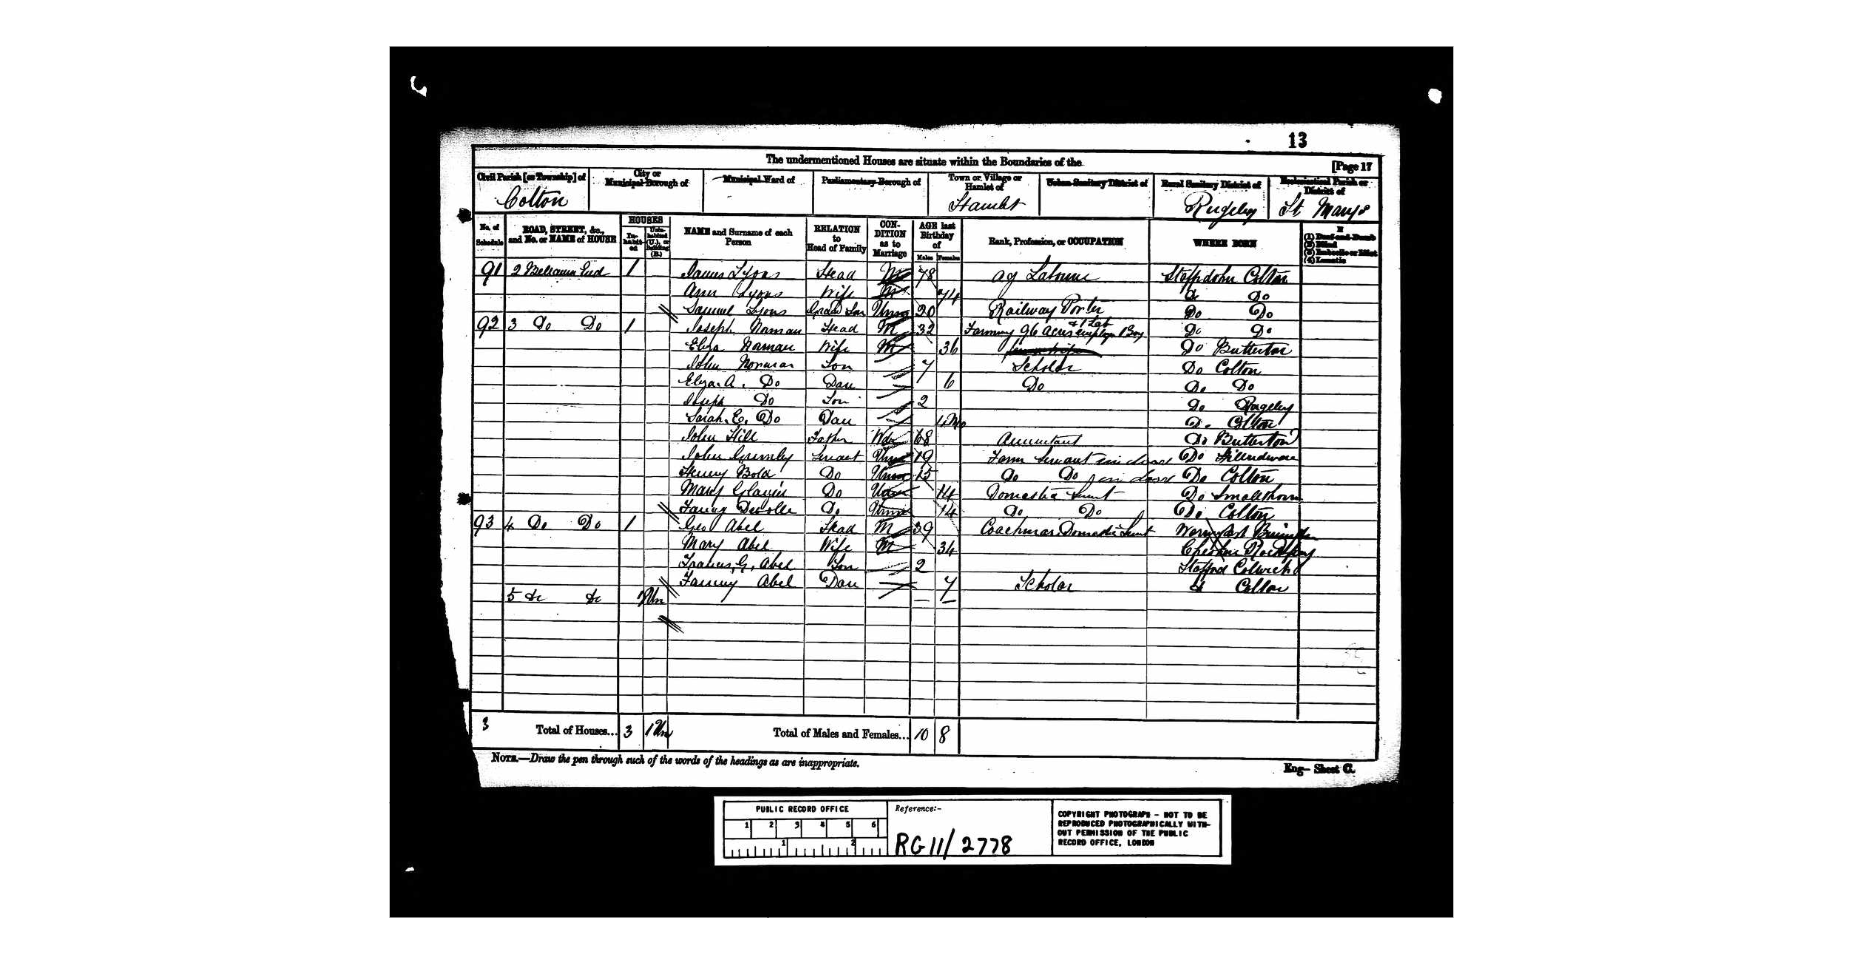 13
The undermentioned Houses are situate within the Boundaries of the
[Page 17
Civil Parish [or Township] of
City or Municipal Borough of
Municipal Ward of
Parliamentary Borough of
Town or Village or Hamlet of
Urban Sanitary District of
Rural Sanitary District of
Ecclesiastical Parish or District of
Colton
Rugeley
St Marys
No. of Schedule
ROAD, STREET, &c., and No. or NAME of HOUSE
HOUSES
Inhabited
Uninhabited (U.), or Building (B.)
NAME and Surname of each Person
RELATION to Head of Family
CONDITION as to Marriage
AGE last Birthday of
Males
Females
Rank, Profession, or OCCUPATION
WHERE BORN
If
(1) Deaf-and-Dumb
(2) Blind
(3) Imbecile or Idiot
(4) Lunatic
91 2 Bellamour End 1 James Lyons Head M 78 Ag Labourer Colton
Ann Lyons Wife M 74 Do Do
Samuel Lyons Grand Son Unm 20 Railway Porter Do Do
92 3 Do Do 1 Joseph Norman Head M 32 Farming 96 Acres employ 1 Lab & 1 Boy Do Do
Eliza Norman Wife M 36 Do Butterton
John Norman Son 7 Scholar Do Colton
Eliza A. Do Dau 6 Do Do Do
Joseph Do Son 2 Do Rugeley
Sarah E. Do Dau Do Colton
John Hill Father Wdr 68 Accountant Do Butterton
John Servant Unm 19 Farm Servant in door Do
Henry Bold Do Unm 15 Do Do in door Do Colton
Mary Do Unm 14 Domestic Servt Do Smallthorn
Fanny Do Unm 14 Do Do Do Colton
93 4 Do Do 1 Geo Abel Head M 39 Coachman Domestic Servt
Mary Abel Wife M 34 Cheshire
Francis G. Abel Son 2 Stafford Colwich
Fanny Abel Dau 7 Scholar Colton
5 do do 1 Un
3 Total of Houses... 3 1 Un Total of Males and Females... 10 8
NOTE.—Draw the pen through such of the words of the headings as are inappropriate.
Eng— Sheet G.
PUBLIC RECORD OFFICE
1 2 3 4 5 6
1 2
Reference:-
RG 11/2778
COPYRIGHT PHOTOGRAPH - NOT TO BE
REPRODUCED PHOTOGRAPHICALLY WITH-
OUT PERMISSION OF THE PUBLIC
RECORD OFFICE, LONDON